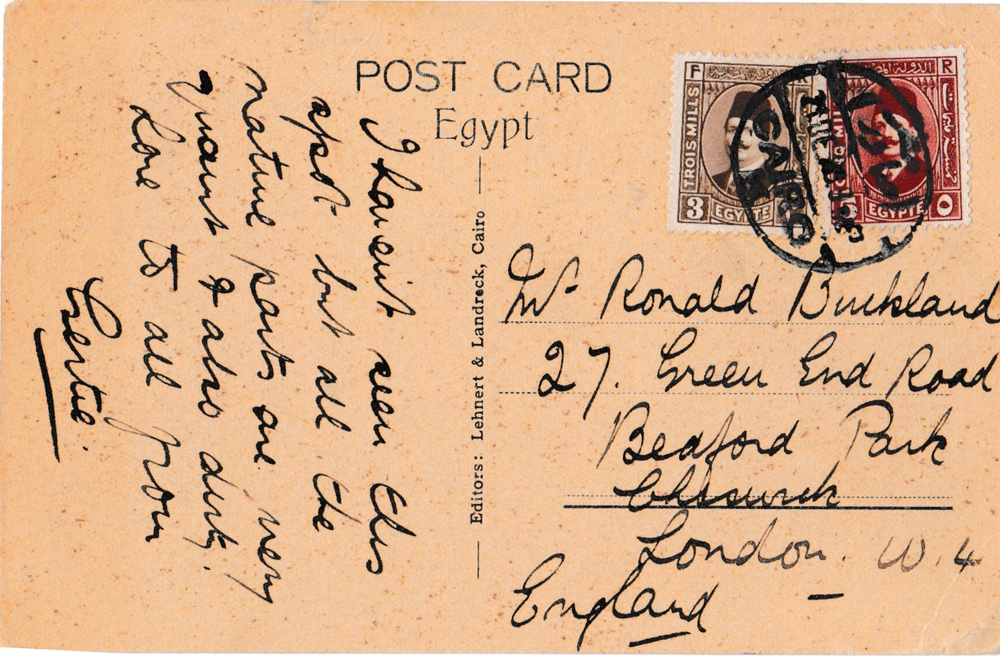 POST CARD
Egypt
I haven't seen this
spot but all the
native parts are very
quaint & also dirty!
Love to all from
Gertie.
Editors: Lehnert & Landrock, Cairo
F R
TROIS MILLS
3 EGYPTE
R
CINQ MILLS
EGYPTE ٥
CAIRO
Mr Ronald Buckland
27. Green End Road
Bedford Park
Chiswick
London. W. 4
England